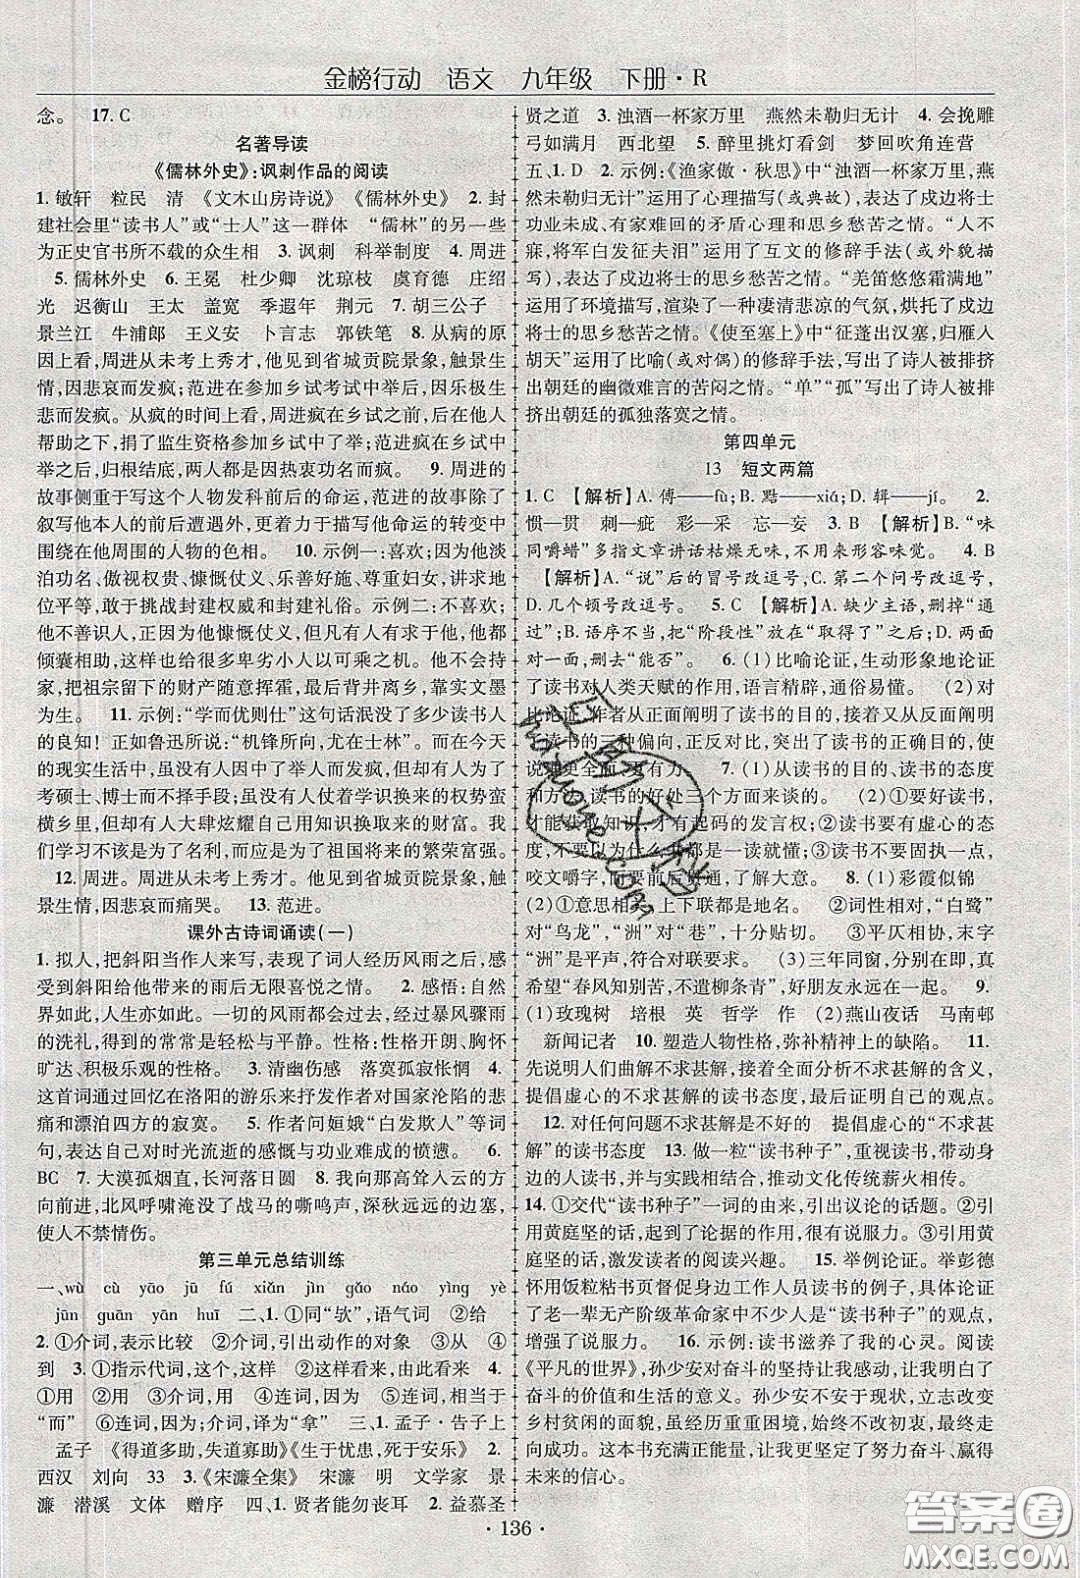 金榜行动 语文 九年级 下册·R
念。 17. C
名著导读
《儒林外史》:讽刺作品的阅读
1. 敏轩 粒民 清 《文木山房诗说》《儒林外史》 2. 封
建社会里“读书人”或“士人”这一群体 “儒林”的另一些
为正史官书所不载的众生相 3. 讽刺 科举制度 4. 周进
5. 儒林外史 6. 王冕 杜少卿 沈琼枝 虞育德 庄绍
光 迟衡山 王太 盖宽 季遐年 荆元 7. 胡三公子
景兰江 牛浦郎 王义安 卜言志 郭铁笔 8. 从病的原
因上看,周进从未考上秀才,他见到省城贡院景象,触景生
情,因悲哀而发疯;范进在参加乡试考试中了举,因乐极生
悲而发疯。从疯的时间上看,周进疯在乡试之前,在别人
帮助之下,捐了监生资格参加乡试中了举;范进疯在乡试
之后,归根结底,两人都是因热衷功名而疯。 9. 周进的
故事侧重于写这个人物发科前后的命运,范进的故事除了
叙写他本人的前后遭遇外,更着力于描写他命运的转变中
围绕在他周围的人物的色相。 10. 示例一:喜欢;因他淡
泊功名、傲视权贵、慷慨仗义、乐善好施、尊重女性、讲求地
位平等,敢于挑战封建权威和封建礼俗。示例二:不喜欢;
他不善识人,正因为他慷慨仗义,只要有人求助,他都会
倾囊相助,这样也给很多卑劣小人以可乘之机。他不会持
家,把祖宗留下的财产随意挥霍,最后背井离乡,靠卖文墨
为生。 11. 示例:“学而优则仕”这句话泯没了多少读书人
的良知!正如鲁迅所说:“机锋所向,尤在士林。”而在今天
的现实生活中,虽没有人因中了举人而发疯,但却有人为了
考硕士、博士而不择手段;虽没有人仗着学识换来的权势蛮
横乡里,但却有人大肆炫耀自己用知识换取来的财富。我
们学习不该是为了名利,而应是为了祖国将来的繁荣富强。
12. 周进。周进从未考上秀才。他见到省城贡院景象,触
景生情,因悲哀而痛哭。 13. 范进。
课外古诗词诵读(一)
1. 拟人,把斜阳当作人来写,表现了词人经历风雨之后,感
受到斜阳给他带来的清新、温暖与无限喜悦之情。 2. 感悟:自然
界有风雨,人生亦如此。一切的风雨都会过去,经过了暴风骤雨
的洗礼,得到的常常是轻松与平静。性格:性格开朗、胸怀
旷达、积极乐观的性格。 3. 清幽伤感 落寞孤寂怅惘 4.
这首词通过回忆在洛阳的游乐来抒发作者对国家沦陷的悲
痛和漂泊四方的寂寞。 5. 作者问姮娥“白发欺人”两句
词,表达自己对时光流逝的感慨与功业难成的愤懑。 6.
BC 7. 大漠孤烟直,长河落日圆 8. 我向那高高耸入云的
方向前进,北风呼啸淹没了战马的嘶鸣声,深秋边远的边塞,
使人不禁情伤。
第三单元总结训练
一、wù cù yāo jū fú xiǎn jìn gǎo náo yìng yè
jūn guān yān huī 二、1. ①同“欤”,语气词 ②给
2. ①介词,表示比较 ②介词,引出动作的对象 ③从 ④
到 3. ①指示代词,这个,这样 ②这样看来,由此看来 4.
①用 ②用 ③介词,用 ④连词,因为 ⑤连词,相当于
“而” ⑥连词,因为;介词,译为“拿” 三、1. 孟子·告子上
孟子 《得道多助,失道寡助》《生于忧患,死于安乐》 2.
西汉 刘向 33 3.《宋濂全集》 宋濂 明 文学家 景
濂 潜溪 文体 赠序 四、1. 贤者能勿丧耳 2. 益慕圣
贤之道 3. 浊酒一杯家万里 燕然未勒归无计 4. 会挽雕
弓如满月 西北望 5. 醉里挑灯看剑 梦回吹角连营
五、1. D 2. 示例:《渔家傲·秋思》中“浊酒一杯家万里,燕
然未勒归无计”运用了心理描写(或典故),表达了戍边将士
功业未成、有家难回的矛盾心理和思乡愁苦之情。“人不
寐,将军白发征夫泪”运用了互文的修辞手法(或外貌描
写),表达了戍边将士的思乡愁苦之情。“羌笛悠悠霜满地”
运用了环境描写,渲染了一种凄清悲凉的气氛,烘托了戍边
将士的思乡愁苦之情。《使至塞上》中“征蓬出汉塞,归雁人
胡天”运用了比喻(或对偶)的修辞手法,写出了诗人被排挤
出朝廷的幽微难言的苦闷之情。“单”“孤”写出了诗人被排
挤出朝廷的孤独落寞之情。
第四单元
13 短文两篇
1. C 【解析】A. 傅——fù;B. 黠——xiá;D. 辑——jí。 2.
惯—贯 刺—疵 彩—采 忘—妄 3. B 【解析】B.“味
同嚼蜡”多指文章讲话枯燥无味,不用来形容味觉。 4. B
【解析】A.“说”后的冒号改逗号,C. 第二个问号改逗号,
D. 几个顿号改逗号。 5. C 【解析】A. 缺少主语,删掉“通
过”;B. 语序不当,把“阶段性”放在“取得了”之后;D. 两面
对一面,删去“能否”。 6. (1)比喻论证,生动形象地论证
了读书对人类天赋的作用,语言精辟,通俗易懂。 (2)对
比论证,作者从正面阐明了读书的正确目的,接着又从反面阐明
了读书的三种偏向,正反对比,突出了读书的正确目的,使
说理更全面,更有力。 7. (1)从读书的目的、读书的态度
和方法、读书的好处三个方面来谈的。 (2)①要好读书,
才能吸取知识,才会有起码的发言权;②读书要有虚心的态
度,不要以为自己一读就懂;③读书不要固执一点,
咬文嚼字,而要前后贯通,了解大意。 8. (1)彩霞似锦
(2)①意思相对,上下联都是地名。 ②词性相对,“白鹭”
对“乌龙”,“洲”对“巷”,十分贴切。 ③平仄相合,末字
“洲”是平声,符合对联要求。 (3)三年同窗,分别在即,真
希望“春风知别苦,不遣柳条青”,好朋友永远在一起。 9.
(1)玫瑰树 培根 英 哲学 作 (2)燕山夜话 马南邨
新闻记者 10. 塑造人物性格,弥补精神上的缺陷。 11.
先说明人们曲解不求甚解,接着全面分析不求甚解的含义,
提倡虚心的不求甚解的读书态度,最后证明自己的观点。
12. 对任何问题不求甚解是不好的 提倡虚心的“不求甚
解”的读书态度 13. 做一粒“读书种子”,重视读书,带动身
边的人读书,共同传承优秀传统文化,推动文化传统薪火相传。
14. ①交代“读书种子”一词的由来,引出议论的话题。 ②引
用黄庭坚的话,起到了论据的作用,很有说服力。 ③引用黄
庭坚的话,激发读者的阅读兴趣。 15. 举例论证。举彭德
怀用饭粒粘书页督促身边工作人员读书的例子,具体论证
了老一辈无产阶级革命家中不少人是“读书种子”的观点,
增强了说服力。 16. 示例:读书滋养了我的心灵。阅读
《平凡的世界》,孙少安对奋斗的坚持让我感动,让我明白了
奋斗的价值和生活的意义。孙少安不安于现状,立志改变
乡村贫困的面貌,虽历经重重困境,始终不改初衷,最终
走向成功。这本书充满正能量,让我更坚定了努力奋斗、赢得
未来的信心。
· 136 ·
答案圈
MXQE.COM